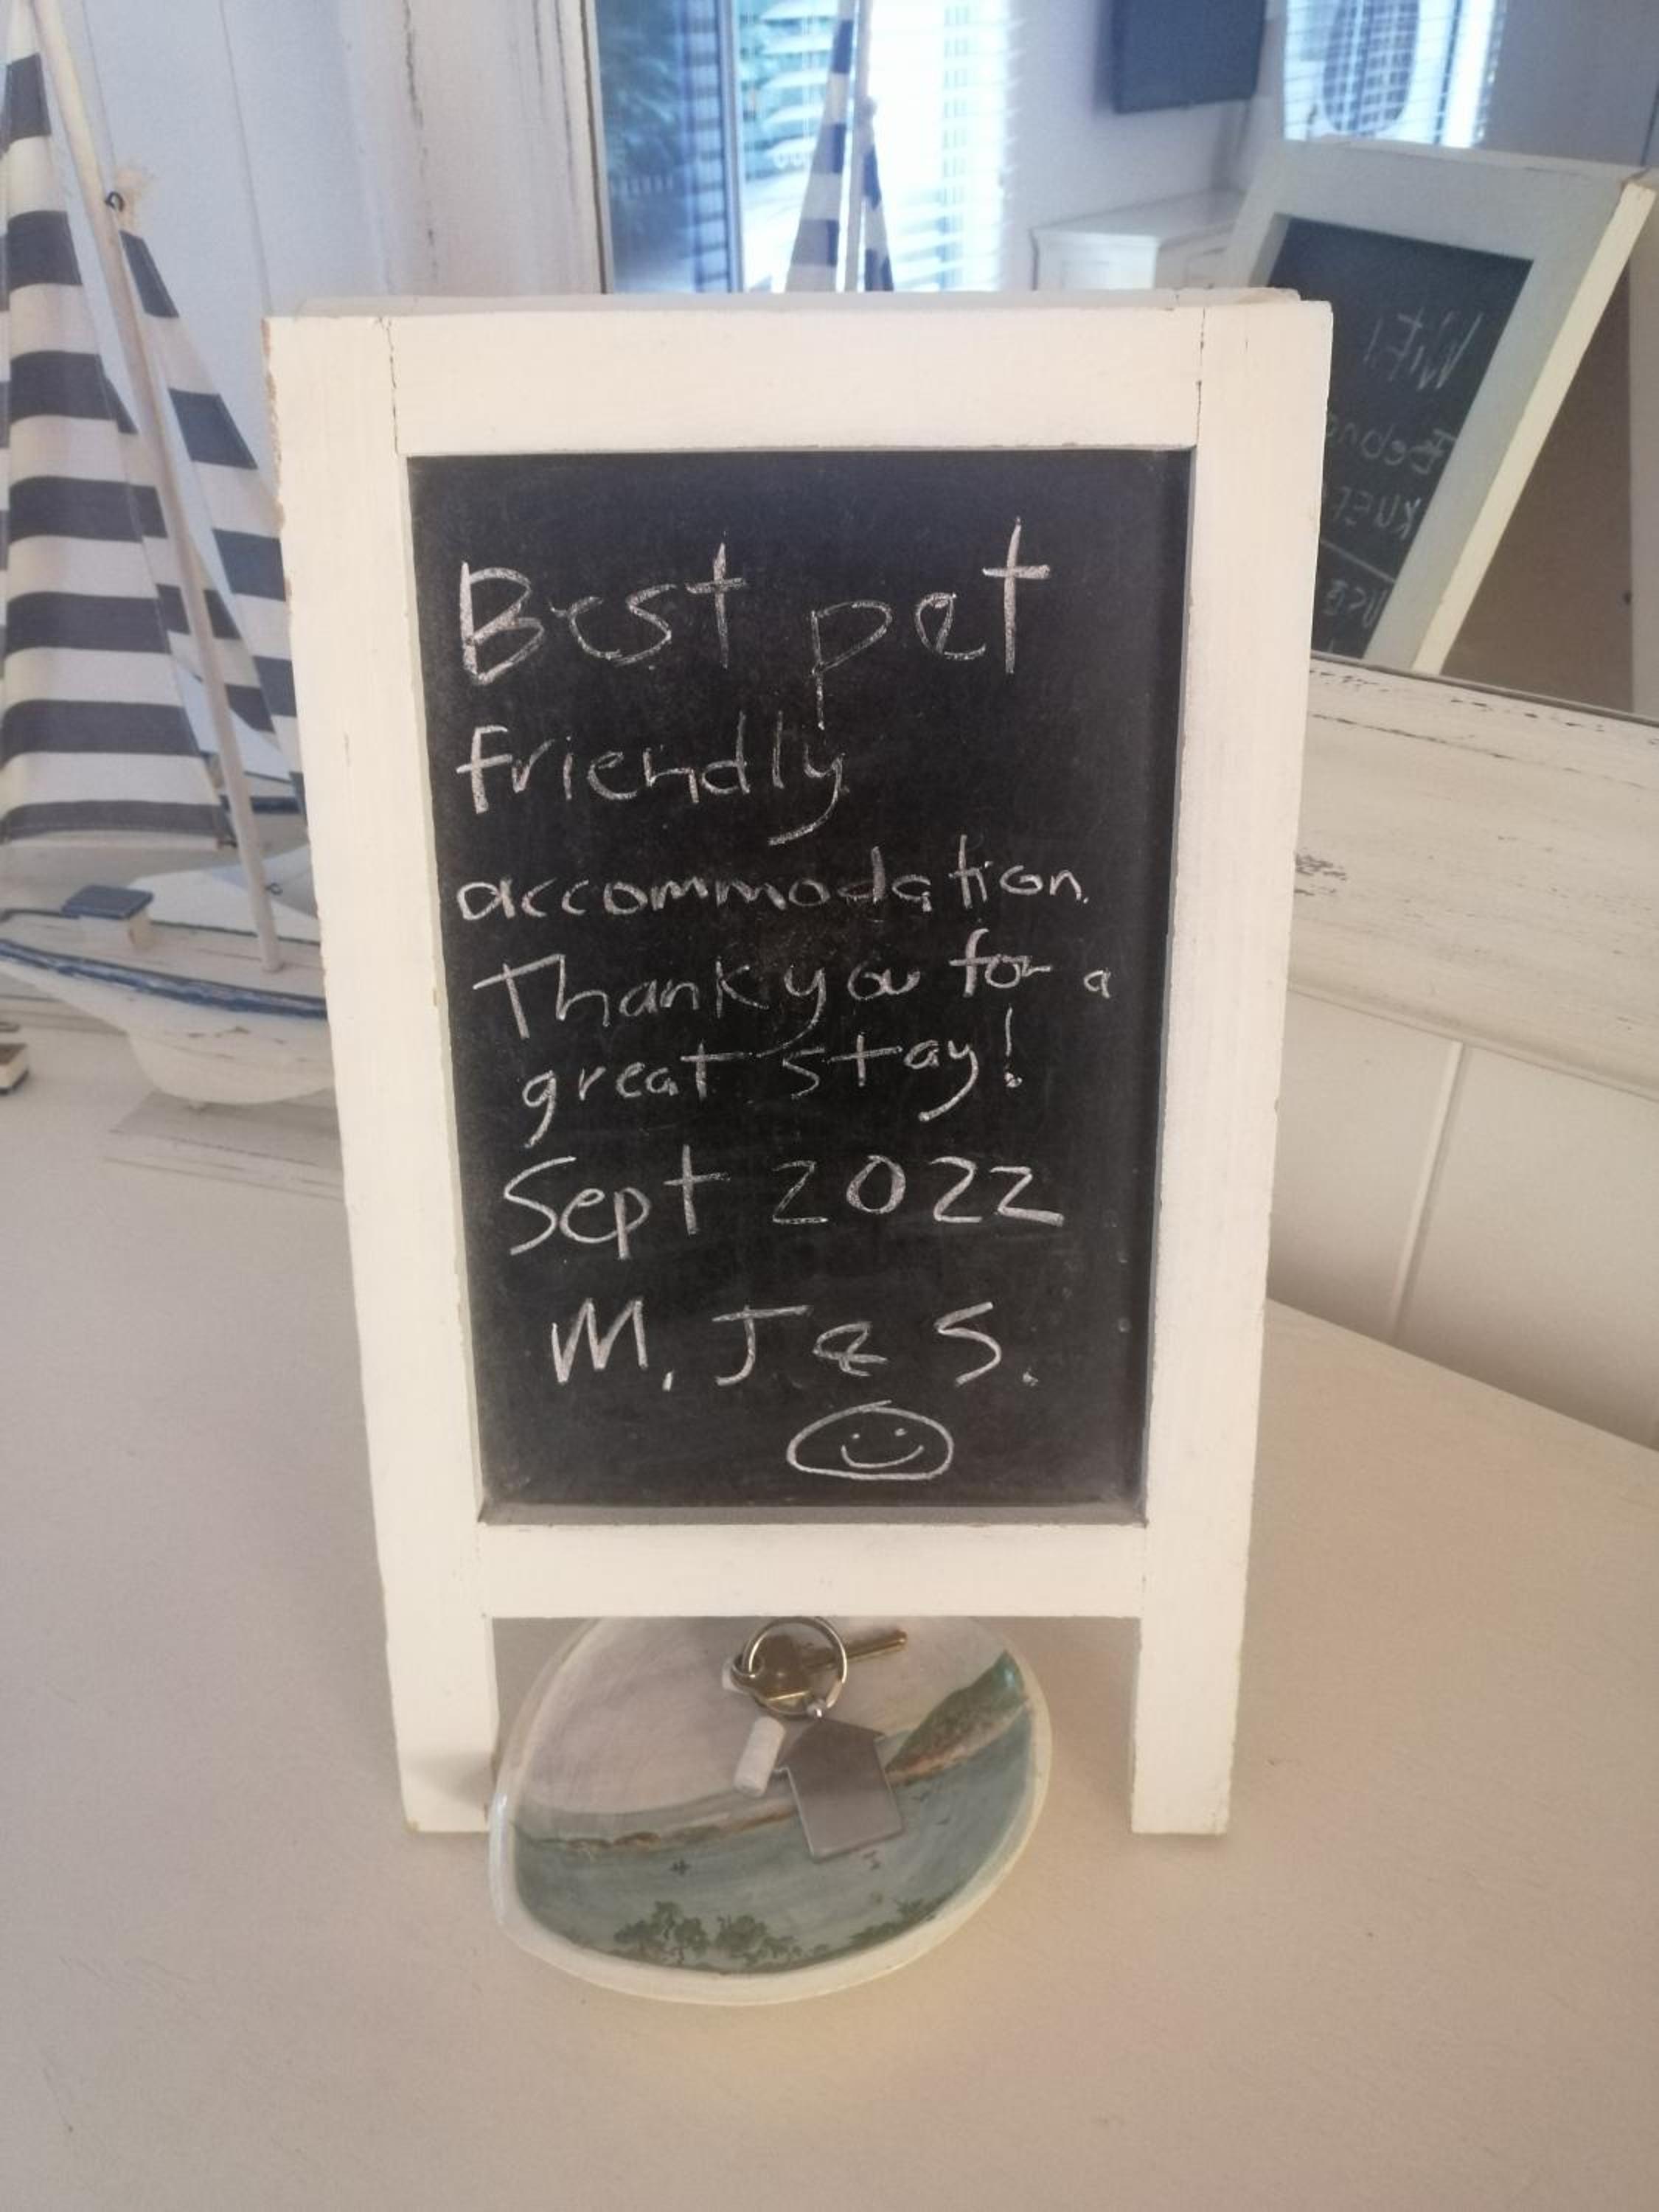 Best pet
friendly
accommodation.
Thank you for a
great stay!
Sept 2022
M, J & S.
WiFi